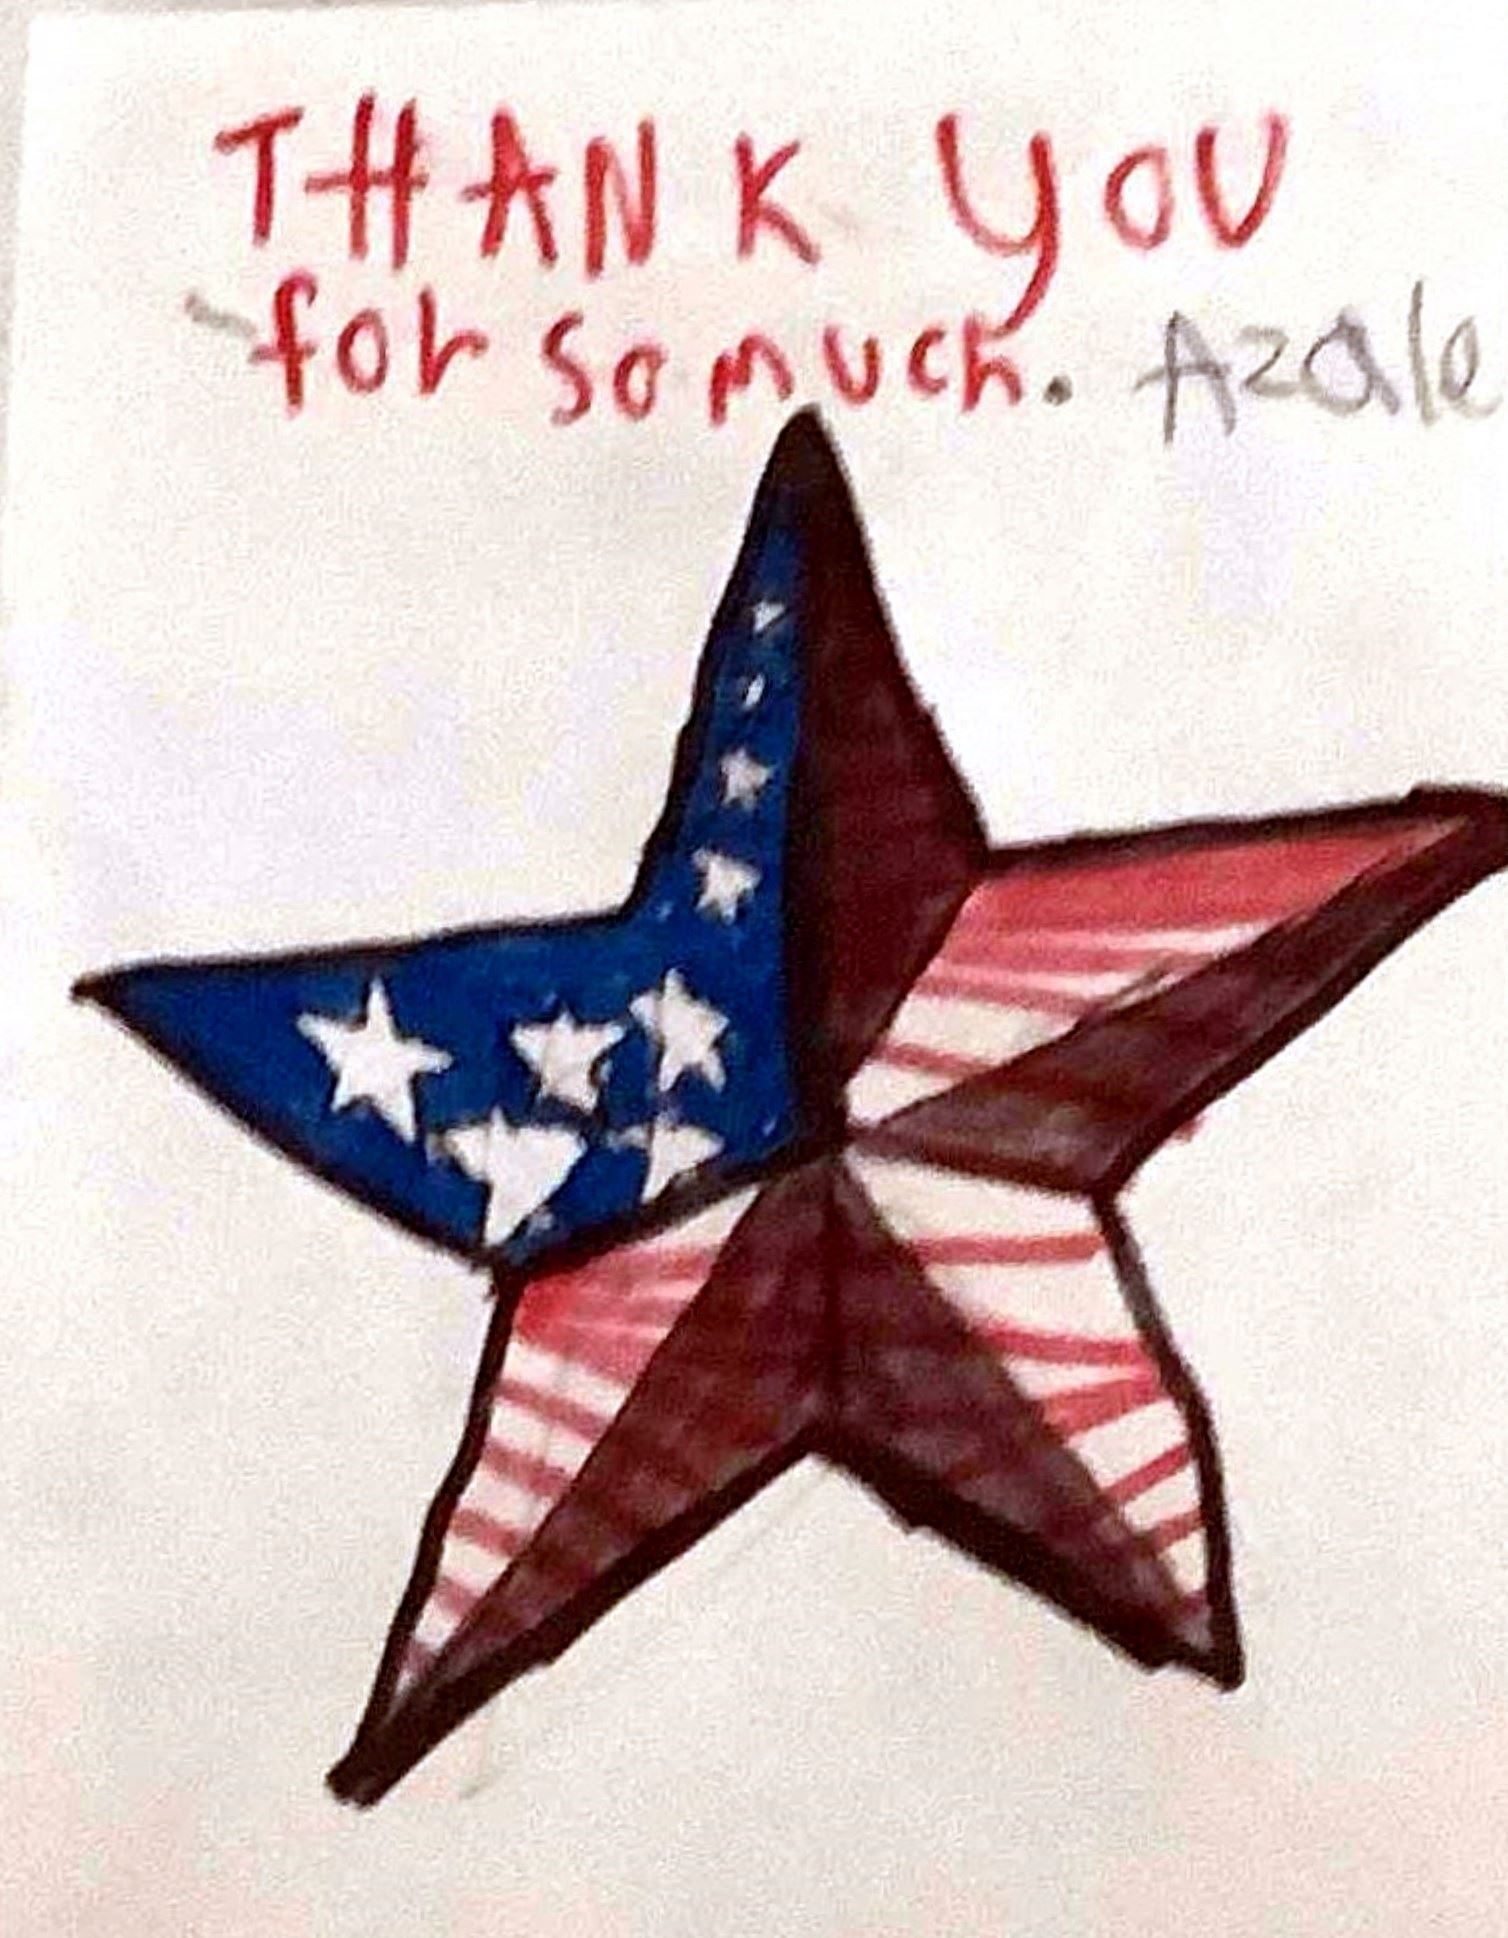 THANK YOU
for so much. Azale